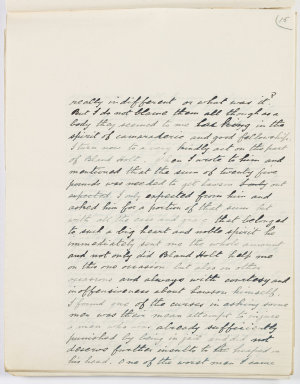 15
really indifferent or what was it?
But I do not blame them all though as a
body they seemed to me lacking in the
spirit of camaraderie and good fellowship.
I turn now to a very kindly act on the part
of Bland Holt. When I wrote to him and
mentioned that the sum of twenty five
pounds was needed to get out
expected I only expected from him and
asked him for a portion of that sum but
with all the and grace that belonged
to such a big heart and noble spirit he
immediately sent me the whole amount
and not only did Bland Holt help me
on this one occasion but also on other
occasions and always with courtesy and
inoffensiveness about himself.
I found one of the curses in asking some
men was their mean attempt to injure
a man who was already sufficiently
punished by being in gaol and did not
deserve further insults to be heaped on
his head. One of the worst men I came